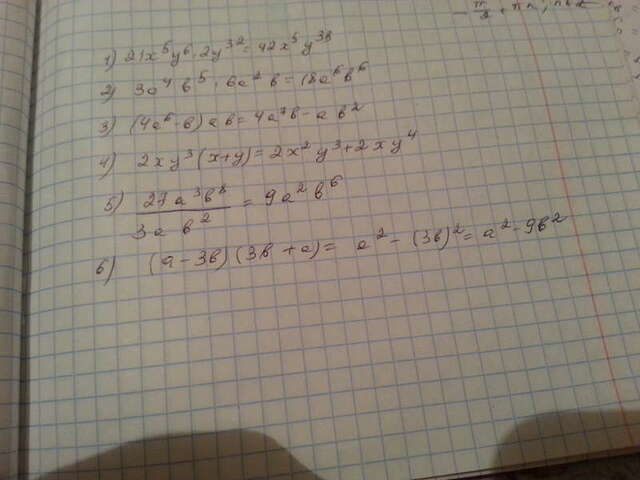 1) 21x⁵y⁶·2y³²=42x⁵y³⁸
2) 3a⁴b⁵·6a²b=18a⁶b⁶
3) (4a⁶-b)ab=4a⁷b-ab²
4) 2xy³(x+y)=2x²y³+2xy⁴
5) 27a³b⁸/3ab²=9a²b⁶
6) (a-3b)(3b+a)=a²-(3b)²=a²-9b²